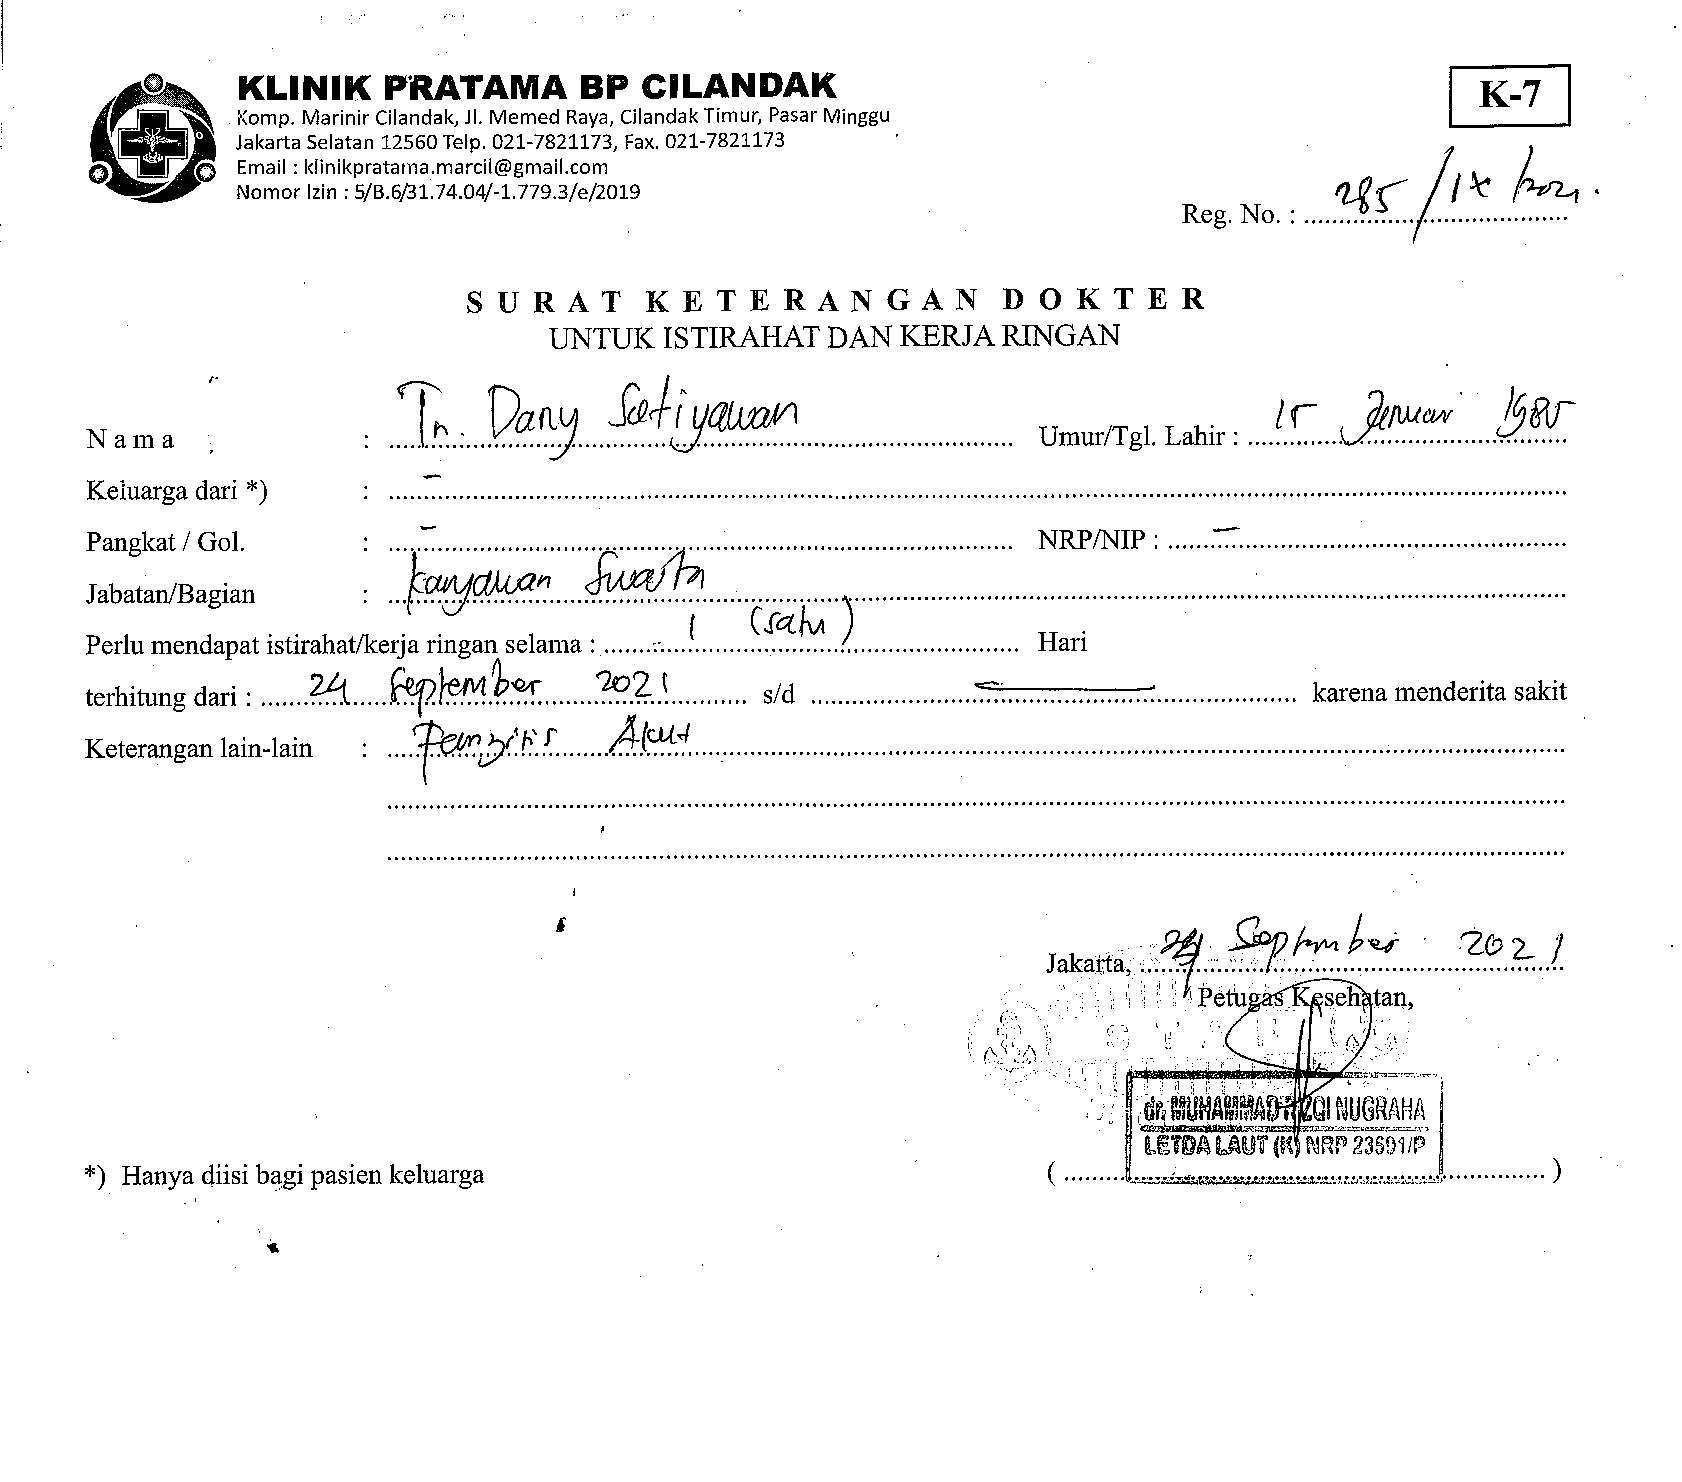 KLINIK PRATAMA BP CILANDAK
Komp. Marinir Cilandak, Jl. Memed Raya, Cilandak Timur, Pasar Minggu
Jakarta Selatan 12560 Telp. 021-7821173, Fax. 021-7821173
Email : klinikpratama.marcil@gmail.com
Nomor Izin : 5/B.6/31.74.04/-1.779.3/e/2019
K-7
Reg. No. : 285 / IX / 2021.
SURAT KETERANGAN DOKTER
UNTUK ISTIRAHAT DAN KERJA RINGAN
Nama : Tn. Dany Setiyawan Umur/Tgl. Lahir : 15 Januari 1985
Keluarga dari *) : -
Pangkat / Gol. : - NRP/NIP : -
Jabatan/Bagian : Karyawan Swasta
Perlu mendapat istirahat/kerja ringan selama : 1 (satu) Hari
terhitung dari : 24 September 2021 s/d — karena menderita sakit
Keterangan lain-lain : Akut
Jakarta, 24 September 2021
Petugas Kesehatan,
dr. MUHAMMAD RIZQI NUGRAHA
LETDA LAUT (K) NRP 23591/P
( )
*) Hanya diisi bagi pasien keluarga